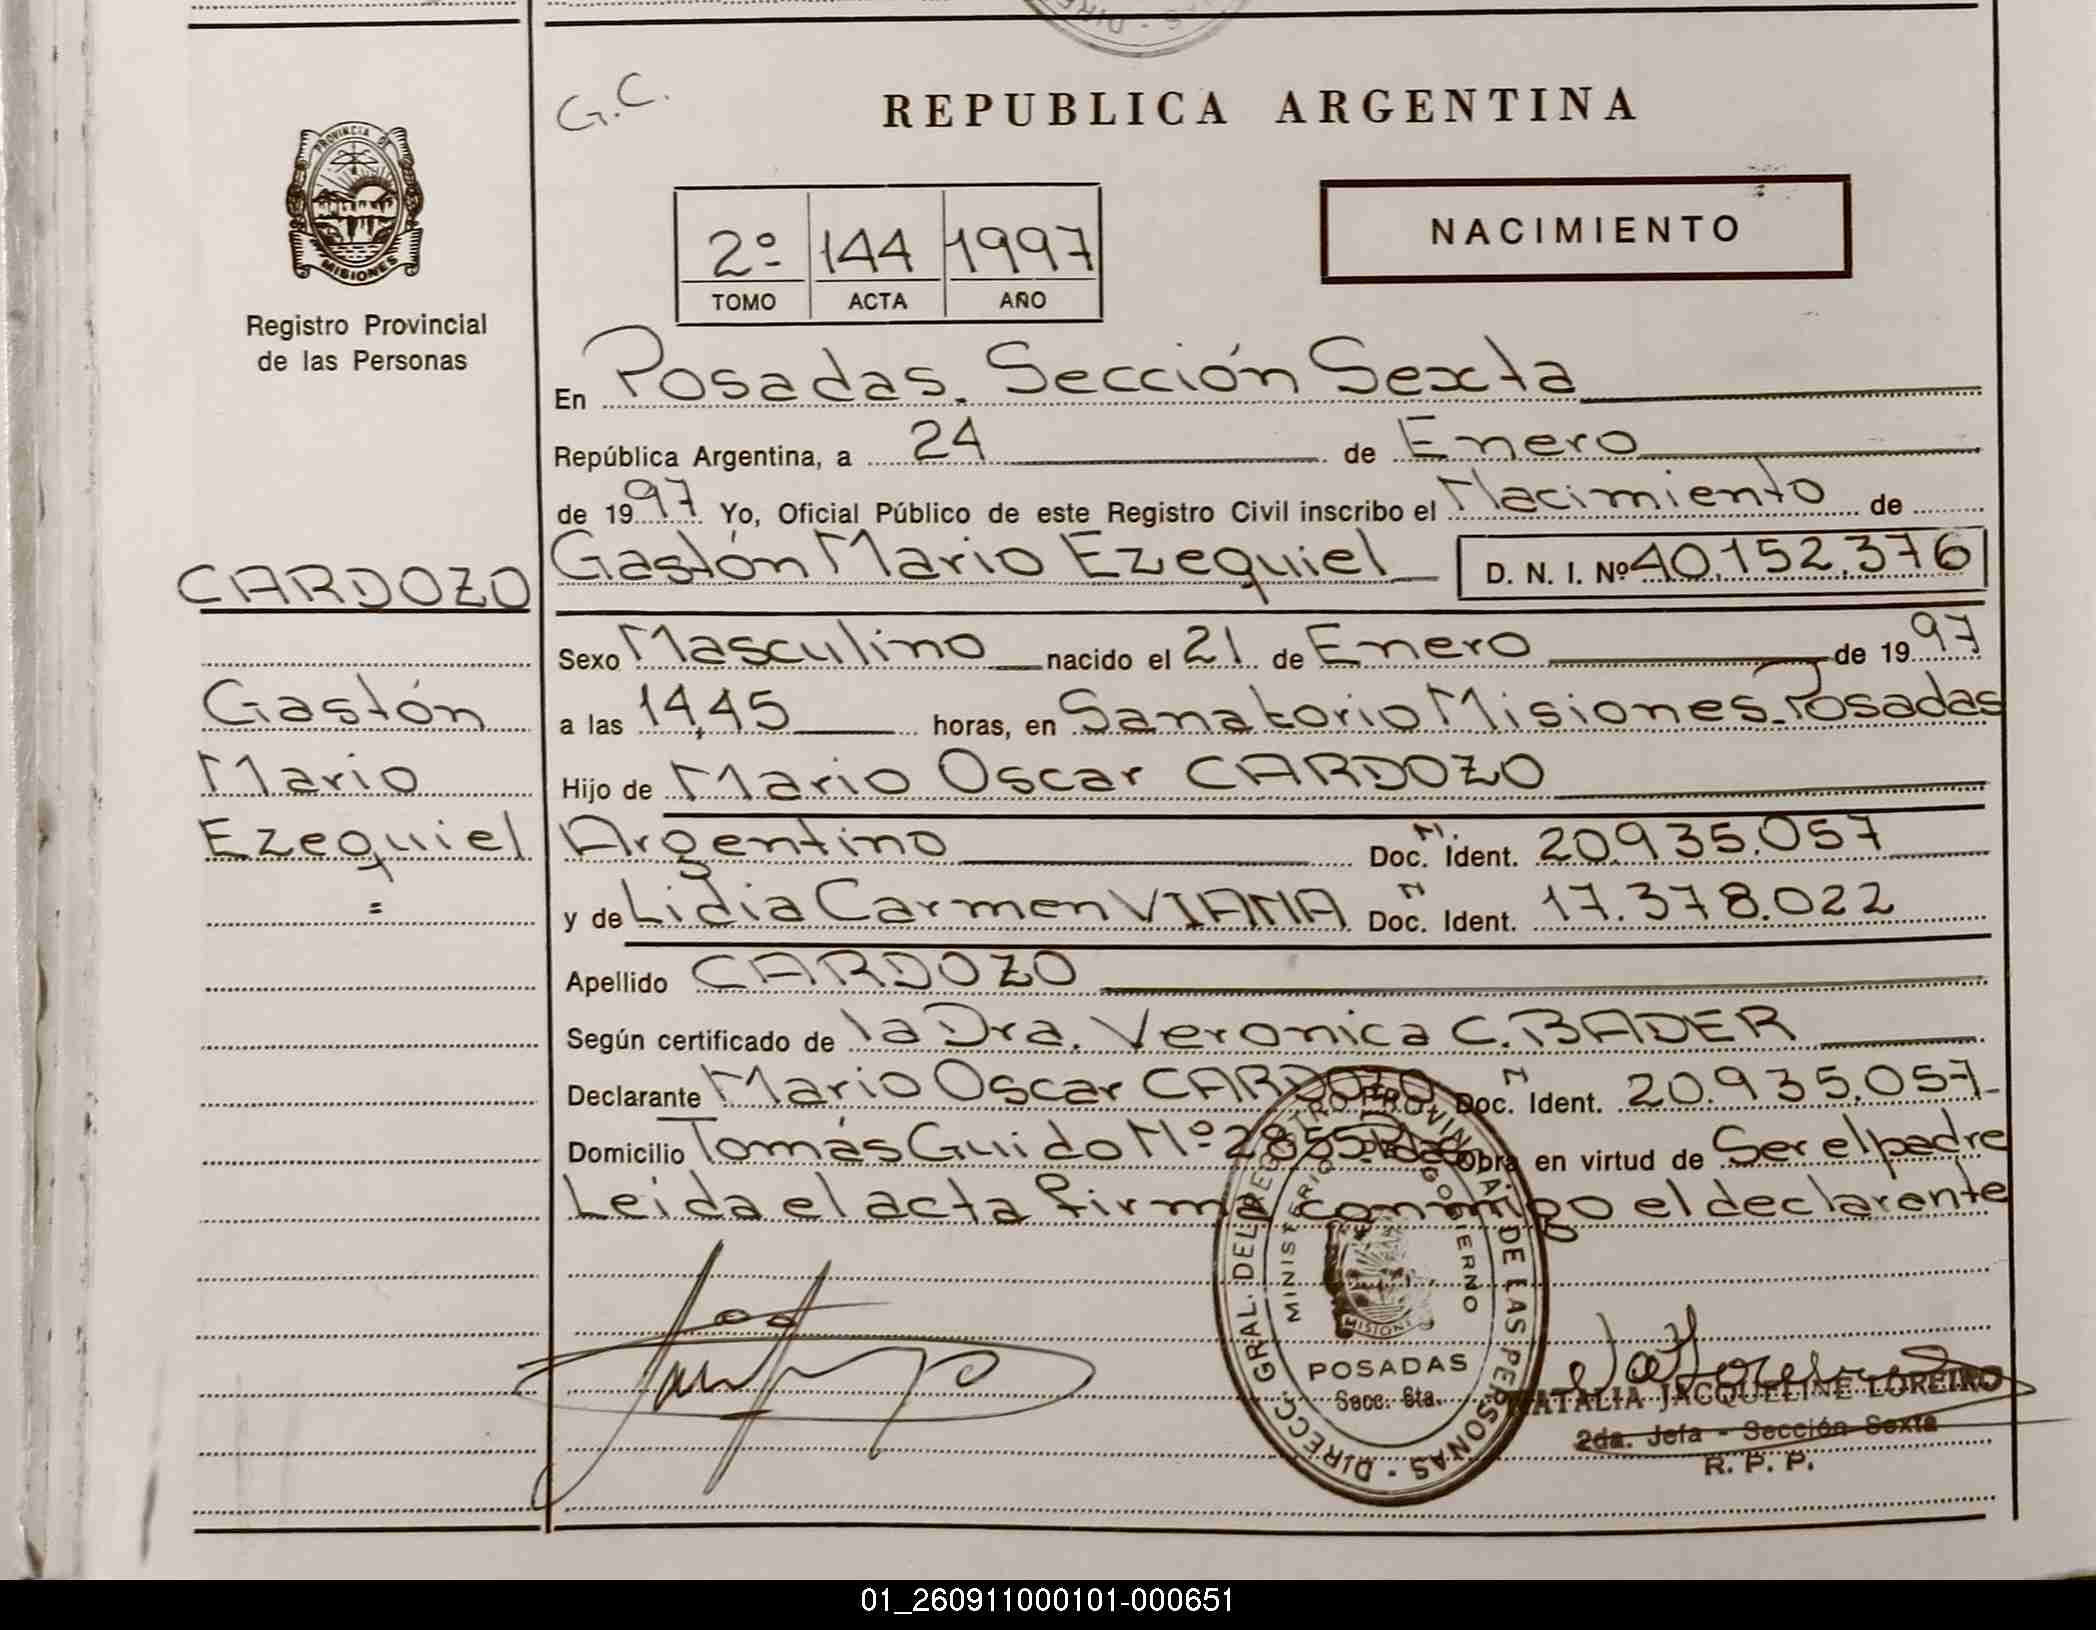 G.C.
REPUBLICA ARGENTINA
PROVINCIA DE
MISIONES
Registro Provincial
de las Personas
2º 144 1997
TOMO ACTA AÑO
NACIMIENTO
En Posadas. Sección Sexta
República Argentina, a 24 de Enero
de 1997 Yo, Oficial Público de este Registro Civil inscribo el Nacimiento de
CARDOZO
Gastón Mario Ezequiel D. N. I. Nº 40.152.376
Sexo Masculino nacido el 21 de Enero de 1997
Gastón
a las 14,45 horas, en Sanatorio Misiones. Posadas
Mario
Hijo de Mario Oscar CARDOZO
Ezequiel
Argentino Doc. N. Ident. 20.935.057
=
y de Lidia Carmen VIANA Doc. N Ident. 17.378.022
Apellido CARDOZO
Según certificado de la Dra. Veronica C. BADER
Declarante Mario Oscar CARDOZO Doc. N Ident. 20.935.057-
Domicilio Tomás Guido Nº 2855 Obra en virtud de Ser el padre
Leida el acta firma conmigo el declarante
DIRECC. GRAL. DEL REGISTRO PROVINCIAL DE LAS PERSONAS
MINISTERIO GOBIERNO
MISIONES
POSADAS
Secc. 6ta.
NATALIA JACQUELINE LOREIRO
2da. Jefa - Sección Sexta
R. P. P.
01_260911000101-000651